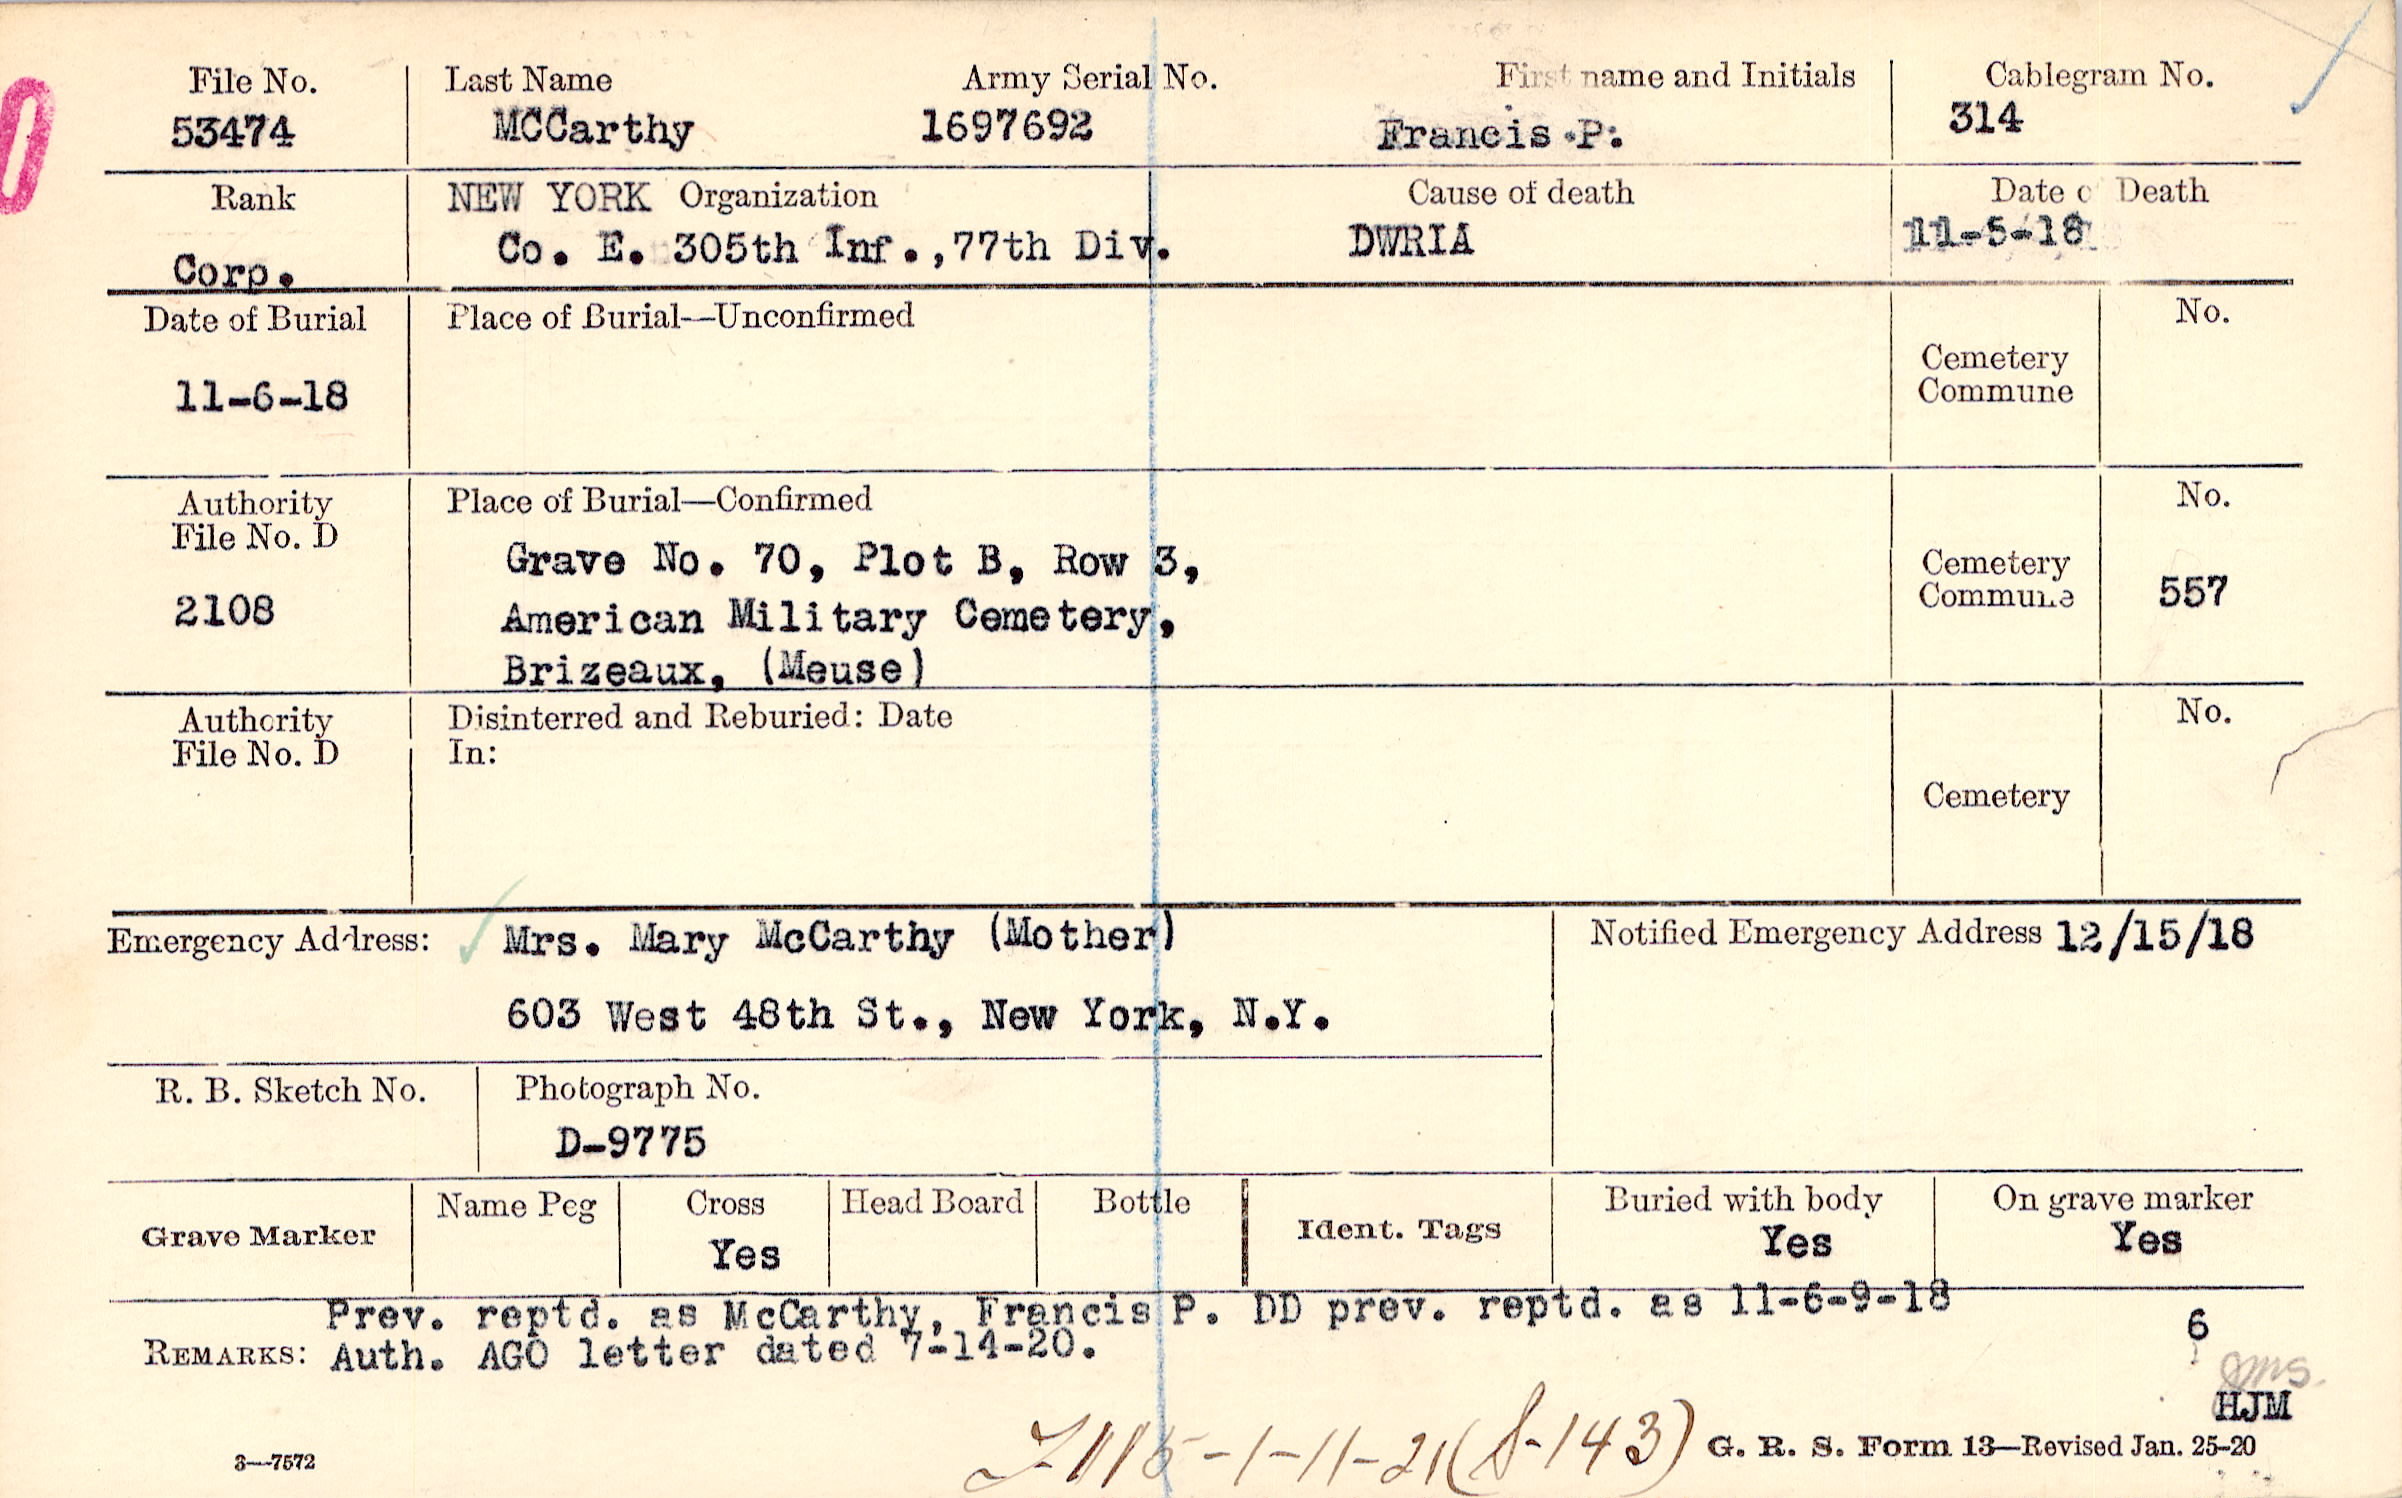 File No. Last Name Army Serial No. First name and Initials Cablegram No.
53474 MCCarthy 1697692 Francis P. 314
Rank NEW YORK Organization Cause of death Date of Death
Corp. Co. E. 305th Inf.,77th Div. DWRIA 11-5-18
Date of Burial Place of Burial—Unconfirmed No.
11-6-18 Cemetery
Commune
Authority Place of Burial—Confirmed No.
File No. D
2108 Grave No. 70, Plot B, Row 3, Cemetery
American Military Cemetery, Commune 557
Brizeaux, (Meuse)
Authority Disinterred and Reburied: Date No.
File No. D In:
Cemetery
Emergency Address: Mrs. Mary McCarthy (Mother) Notified Emergency Address 12/15/18
603 West 48th St., New York, N.Y.
R. B. Sketch No. Photograph No.
D-9775
Grave Marker Name Peg Cross Head Board Bottle Ident. Tags Buried with body On grave marker
Yes Yes Yes
Prev. reptd. as McCarthy, Francis P. DD prev. reptd. as 11-6-9-18
REMARKS: Auth. AGO letter dated 7-14-20.
6
HJM
115-1-11-21(S-143)
3—7572 G. R. S. Form 13—Revised Jan. 25-20